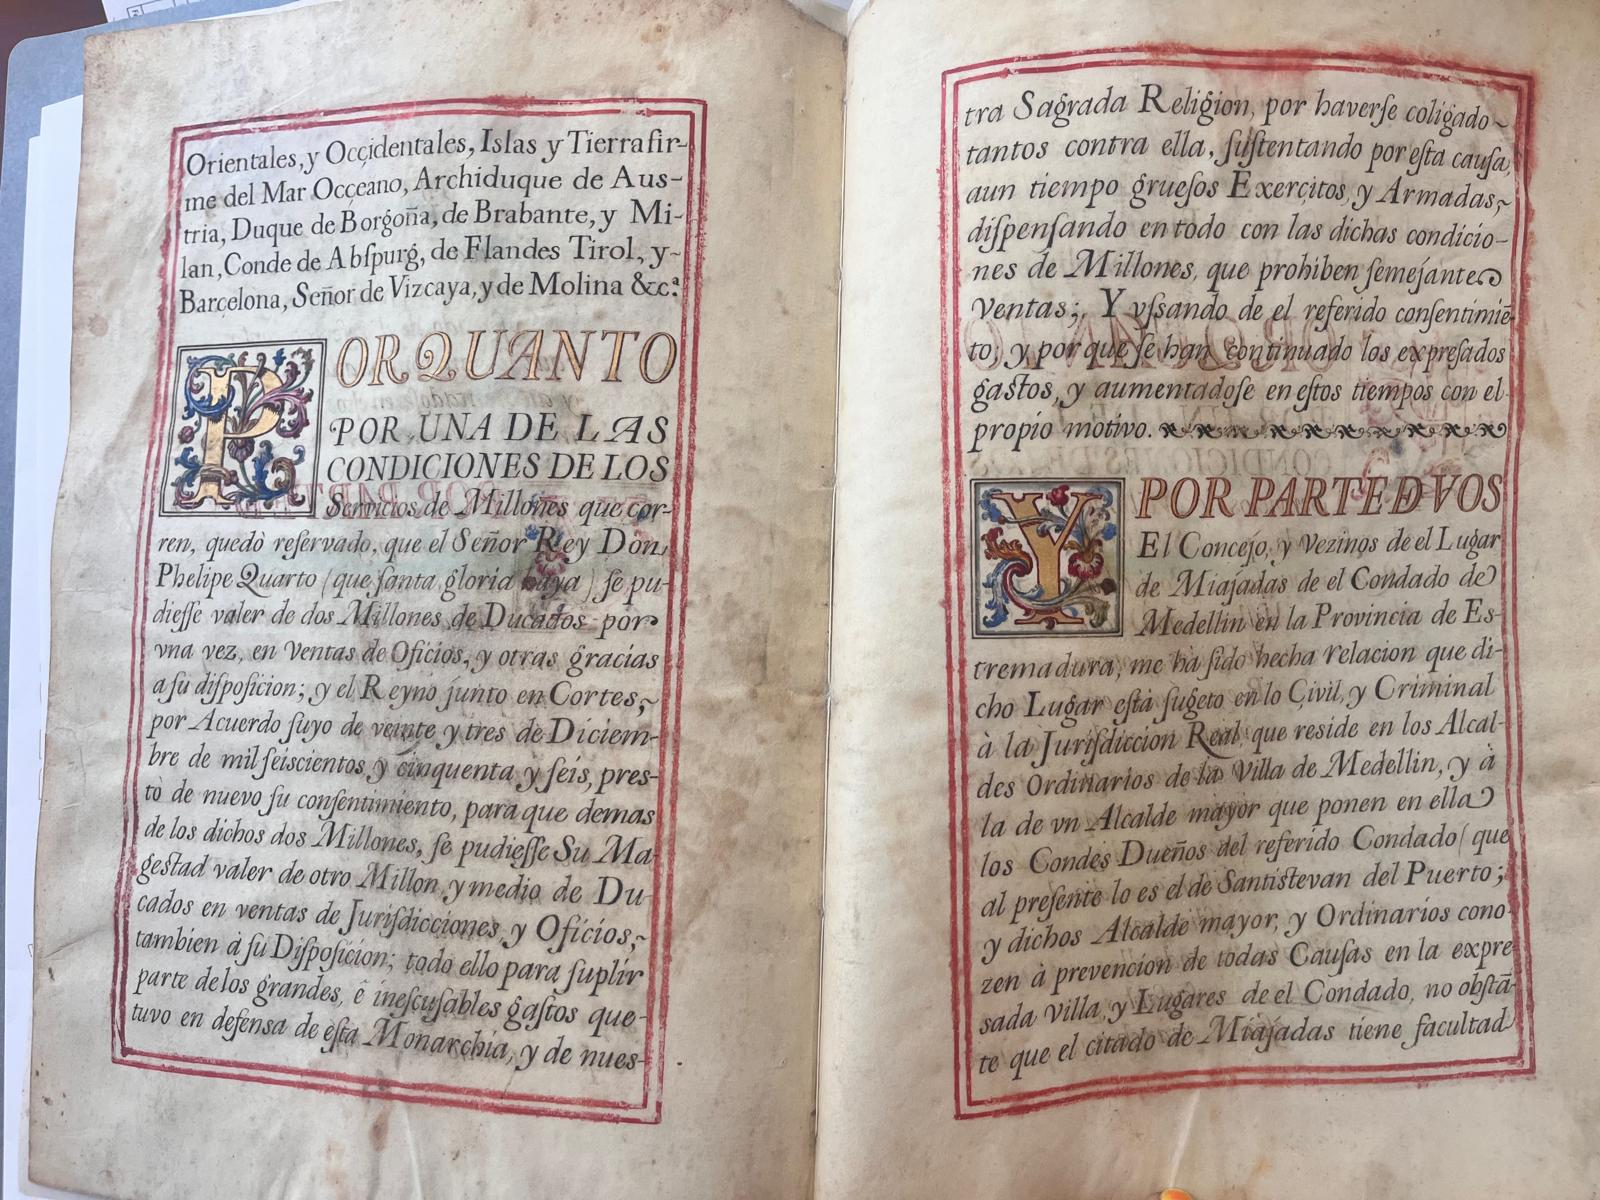 Orientales, y Occidentales, Islas y Tierrafir-
me del Mar Occeano, Archiduque de Aus-
tria, Duque de Borgoña, de Brabante, y Mi-
lan, Conde de Abſpurg, de Flandes Tirol, y-
Barcelona, Señor de Vizcaya, y de Molina &c.ª
POR QUANTO
POR UNA DE LAS
CONDICIONES DE LOS
Servicios de Millones que cor-
ren, quedò reſervado, que el Señor Rey Don
Phelipe Quarto (que ſanta gloria haya) ſe pu-
dieſſe valer de dos Millones de Ducados por
vna vez, en Ventas de Oficios, y otras gracias
a ſu diſpoſicion; y el Reyno junto en Cortes,
por Acuerdo ſuyo de veinte y tres de Diciem-
bre de mil ſeiscientos y cinquenta y ſeis, pres-
tò de nuevo ſu conſentimiento, para que demas
de los dichos dos Millones, ſe pudieſſe Su Ma-
geſtad valer de otro Millon y medio de Du-
cados en ventas de Juriſdicciones, y Oficios,
tambien à ſu Diſpoſicion; todo ello para ſuplir
parte de los grandes, ê ineſcuſables gaſtos que-
tuvo en defensa de eſta Monarchia, y de nues-
tra Sagrada Religion, por haverſe coligado
tantos contra ella, ſuſtentando por eſta cauſa,
aun tiempo grueſos Exercitos, y Armadas,
diſpenſando en todo con las dichas condicio-
nes de Millones, que prohiben ſemejantes
Ventas; Y vſsando de el referido conſentimiē-
to, y por que ſe han continuado los expreſados
gaſtos, y aumentadoſe en eſtos tiempos con el
propio motivo.
Y POR PARTE D VOS
El Concejo, y Vezinos de el Lugar
de Miajadas de el Condado de
Medellin en la Provincia de Es-
tremadura, me ha ſido hecha relacion que di-
cho Lugar eſtà ſugeto en lo Çivil, y Criminal
à la Juriſdiccion Real, que reside en los Alcal-
des Ordinarios de la Villa de Medellin, y à
la de vn Alcalde mayor que ponen en ella
los Condes Dueños del referido Condado (que
al preſente lo es el de Santiſtevan del Puerto;
y dichos Alcalde mayor, y Ordinarios cono-
zen à prevencion de todas Cauſas en la expre
sada Villa, y Lugares de el Condado, no obſtā-
te que el citado de Miajadas tiene facultad